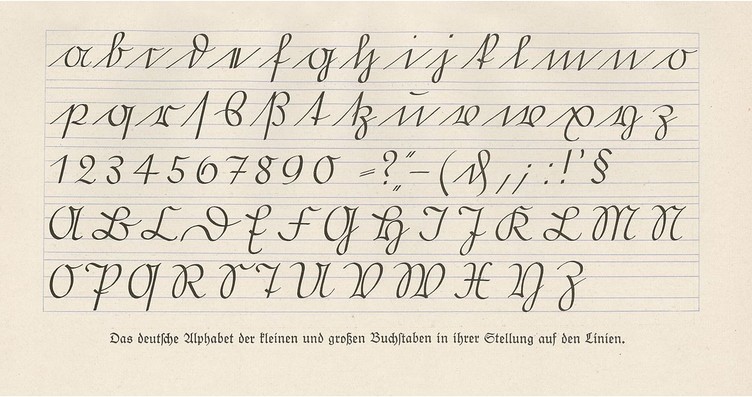 a b c d e f g h i j k l m n o
p q r ſ s ß t tz ū v w x y z
1 2 3 4 5 6 7 8 9 0 = ? „ “ – ( & , ; : ! ' §
A B C D E F G H I J K L M N
O P Q R S T U V W X Y Z
Das deutſche Alphabet der kleinen und großen Buchſtaben in ihrer Stellung auf den Linien.